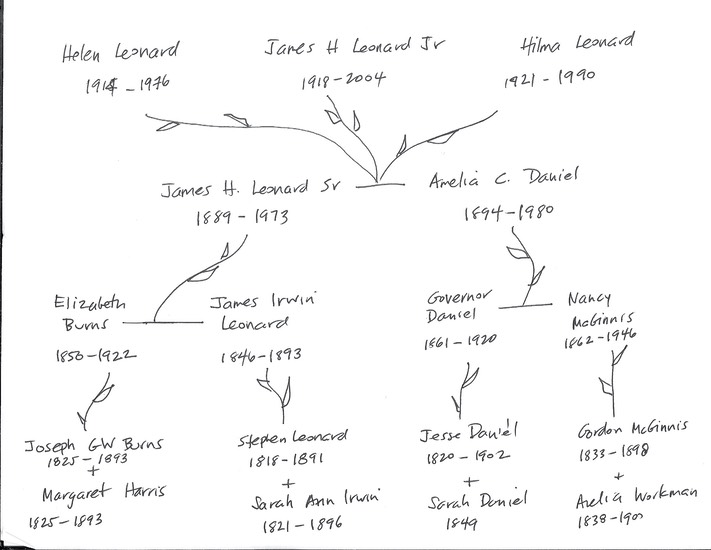 Helen Leonard
1914 - 1976
James H Leonard Jr
1918 - 2004
Hilma Leonard
1921 - 1990
James H. Leonard Sr
1889 - 1973
Amelia C. Daniel
1894 - 1980
Elizabeth
Burns
1850 - 1922
James Irwin
Leonard
1846 - 1893
Governor
Daniel
1861 - 1920
Nancy
McGinnis
1862 - 1946
Joseph GW Burns
1825 - 1893
+
Margaret Harris
1825 - 1893
Stephen Leonard
1818 - 1891
+
Sarah Ann Irwin
1821 - 1896
Jesse Daniel
1820 - 1902
+
Sarah Daniel
1849
Gordon McGinnis
1833 - 1898
+
Workman